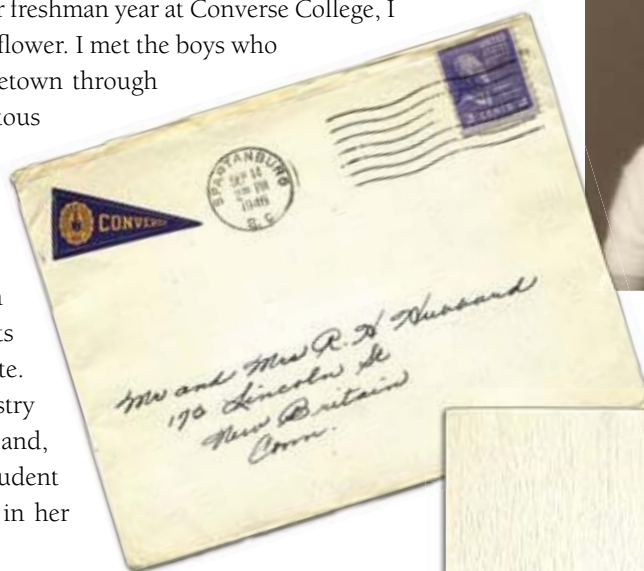 r freshman year at Converse College, I
flower. I met the boys who
etown through
ious
ts
te.
stry
and,
udent
in her
CONVERSE
SPARTANBURG
SEP 14
1946
S. C.
3 CENTS 3
Mr and Mrs R. H Hubbard
170 Lincoln St
New Britain
Conn.